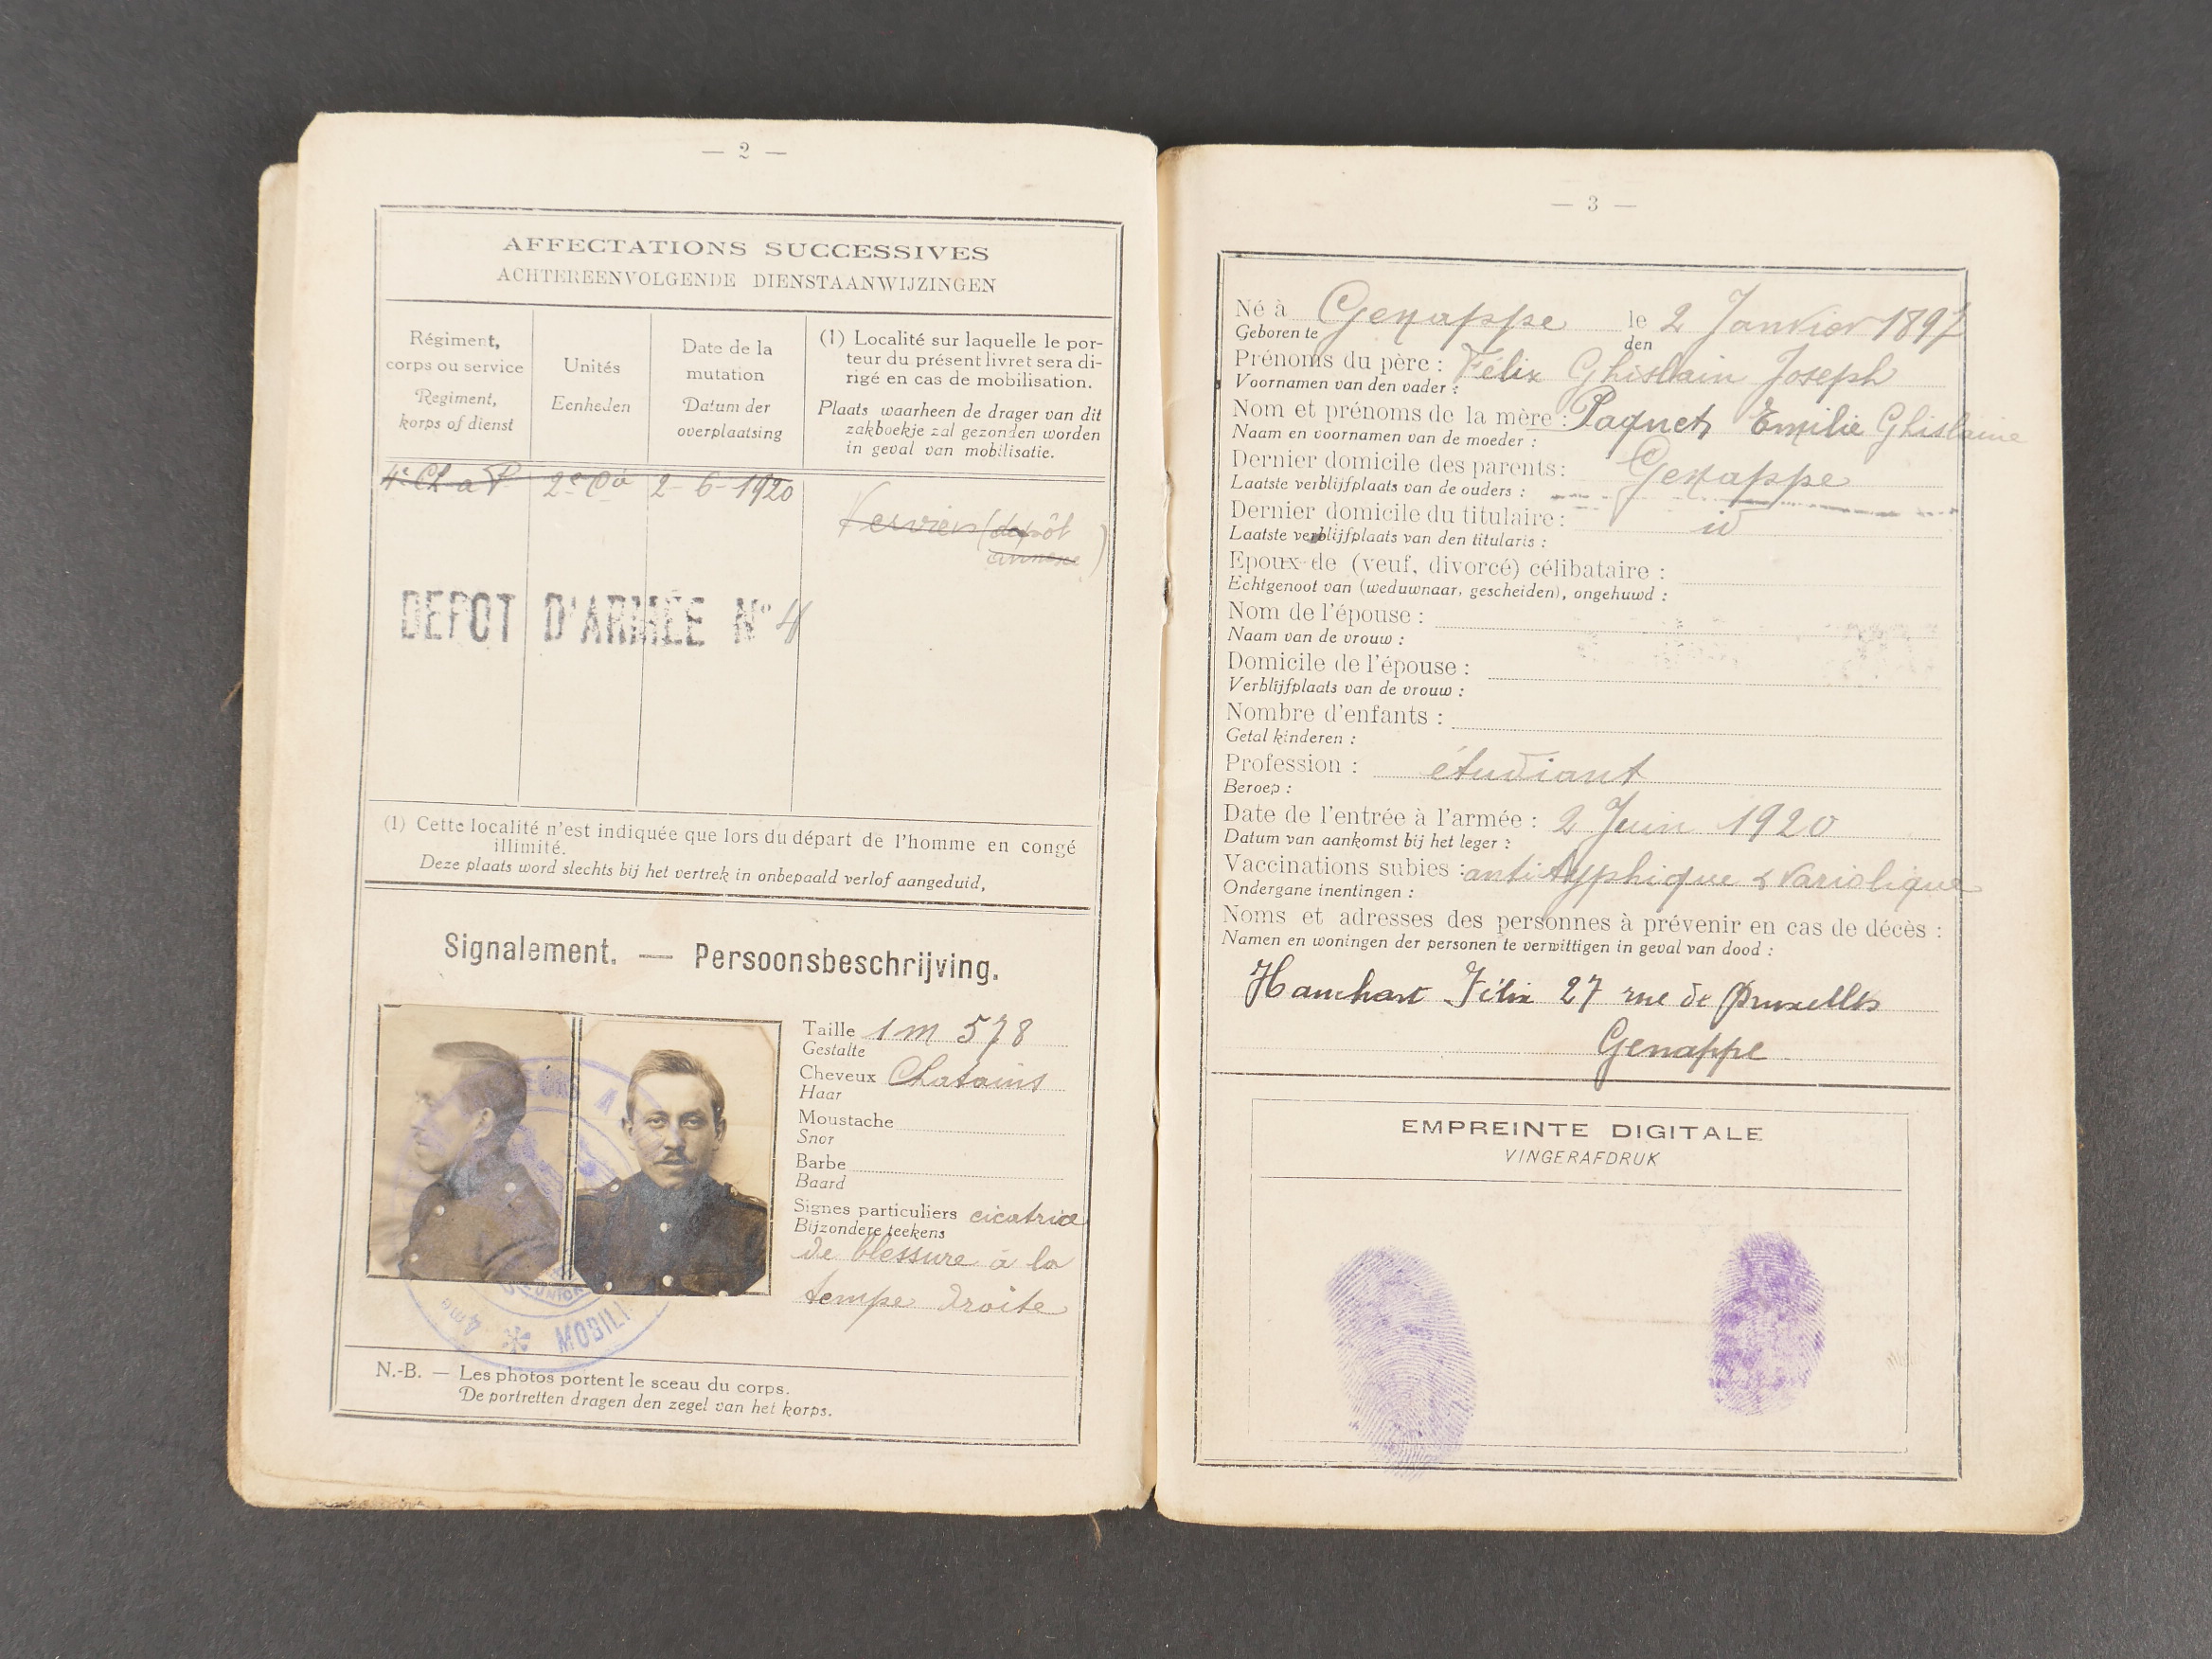 — 2 —
AFFECTATIONS SUCCESSIVES
ACHTEREENVOLGENDE DIENSTAANWIJZINGEN
Régiment,
corps ou service
Regiment,
korps of dienst
Unités
Eenheden
Date de la
mutation
Datum der
overplaatsing
(1) Localité sur laquelle le por-
teur du présent livret sera di-
rigé en cas de mobilisation.
Plaats waarheen de drager van dit
zakboekje zal gezonden worden
in geval van mobilisatie.
4e Ch a P 2e Cie 2-6-1920
Verviers (dépôt
annexe)
DEPOT D'ARMÉE N° 4
(1) Cette localité n'est indiquée que lors du départ de l'homme en congé
illimité.
Deze plaats word slechts bij het vertrek in onbepaald verlof aangeduid,
Signalement. — Persoonsbeschrijving.
Taille 1m 578
Gestalte
Cheveux Chatains
Haar
Moustache
Snor
Barbe
Baard
Signes particuliers cicatrice
Bijzondere teekens
de blessure à la
tempe droite
4me * MOBILI
N.-B. — Les photos portent le sceau du corps.
De portretten dragen den zegel van het korps.
— 3 —
Né à Genappe le 2 Janvier 1897
Geboren te den
Prénoms du père : Félix Ghislain Joseph
Voornamen van den vader :
Nom et prénoms de la mère : Paquet Emilie Ghislaine
Naam en voornamen van de moeder :
Dernier domicile des parents : Genappe
Laatste verblijfplaats van de ouders :
Dernier domicile du titulaire : id
Laatste verblijfplaats van den titularis :
Epoux de (veuf, divorcé) célibataire :
Echtgenoot van (weduwnaar, gescheiden), ongehuwd :
Nom de l'épouse :
Naam van de vrouw :
Domicile de l'épouse :
Verblijfplaats van de vrouw :
Nombre d'enfants :
Getal kinderen :
Profession : étudiant
Beroep :
Date de l'entrée à l'armée : 2 Juin 1920
Datum van aankomst bij het leger :
Vaccinations subies : antityphique & variolique
Ondergane inentingen :
Noms et adresses des personnes à prévenir en cas de décès :
Namen en woningen der personen te verwittigen in geval van dood :
Hanchart Félix 27 rue de Bruxelles
Genappe
EMPREINTE DIGITALE
VINGERAFDRUK